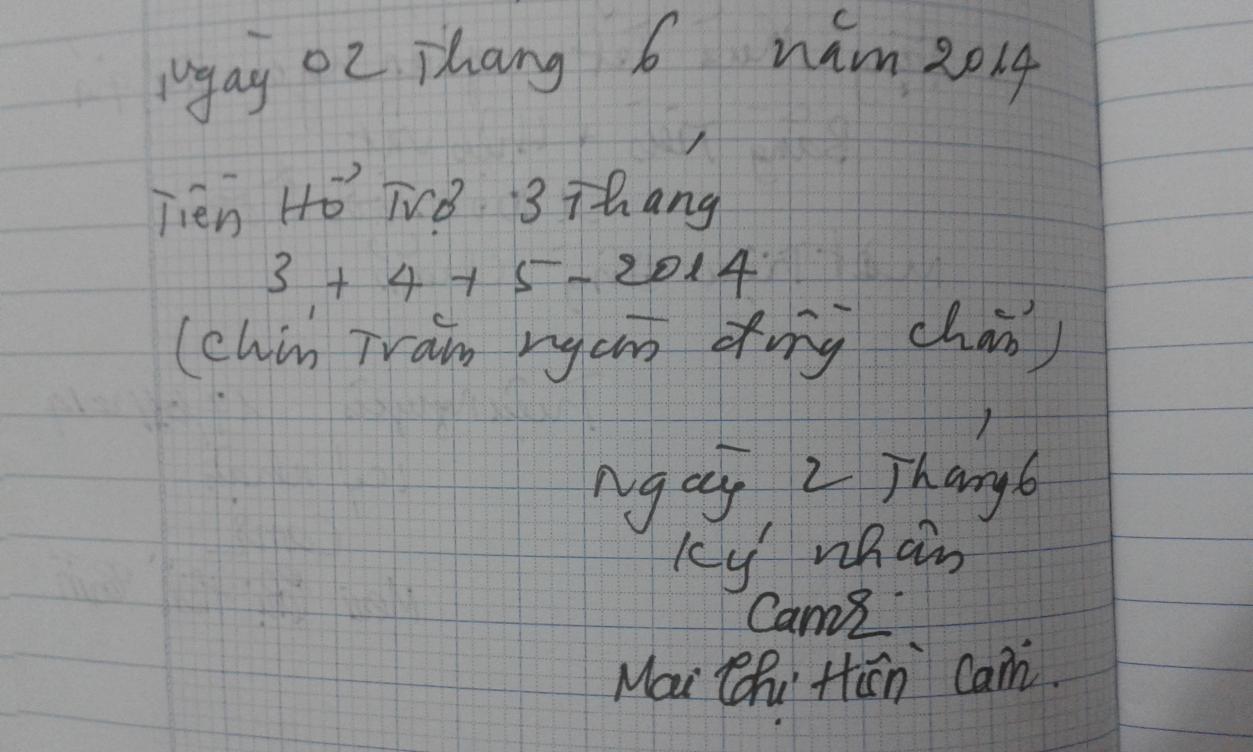 Ngày 02 Thang 6 năm 2014
Tiền Hổ Trợ 3 Tháng
3 + 4 + 5 - 2014
(Chín Trăm ngàn đồng chẵn)
Ngày 2 Tháng 6
Ký nhân
Cam
Mai Thị Hiền Cam.